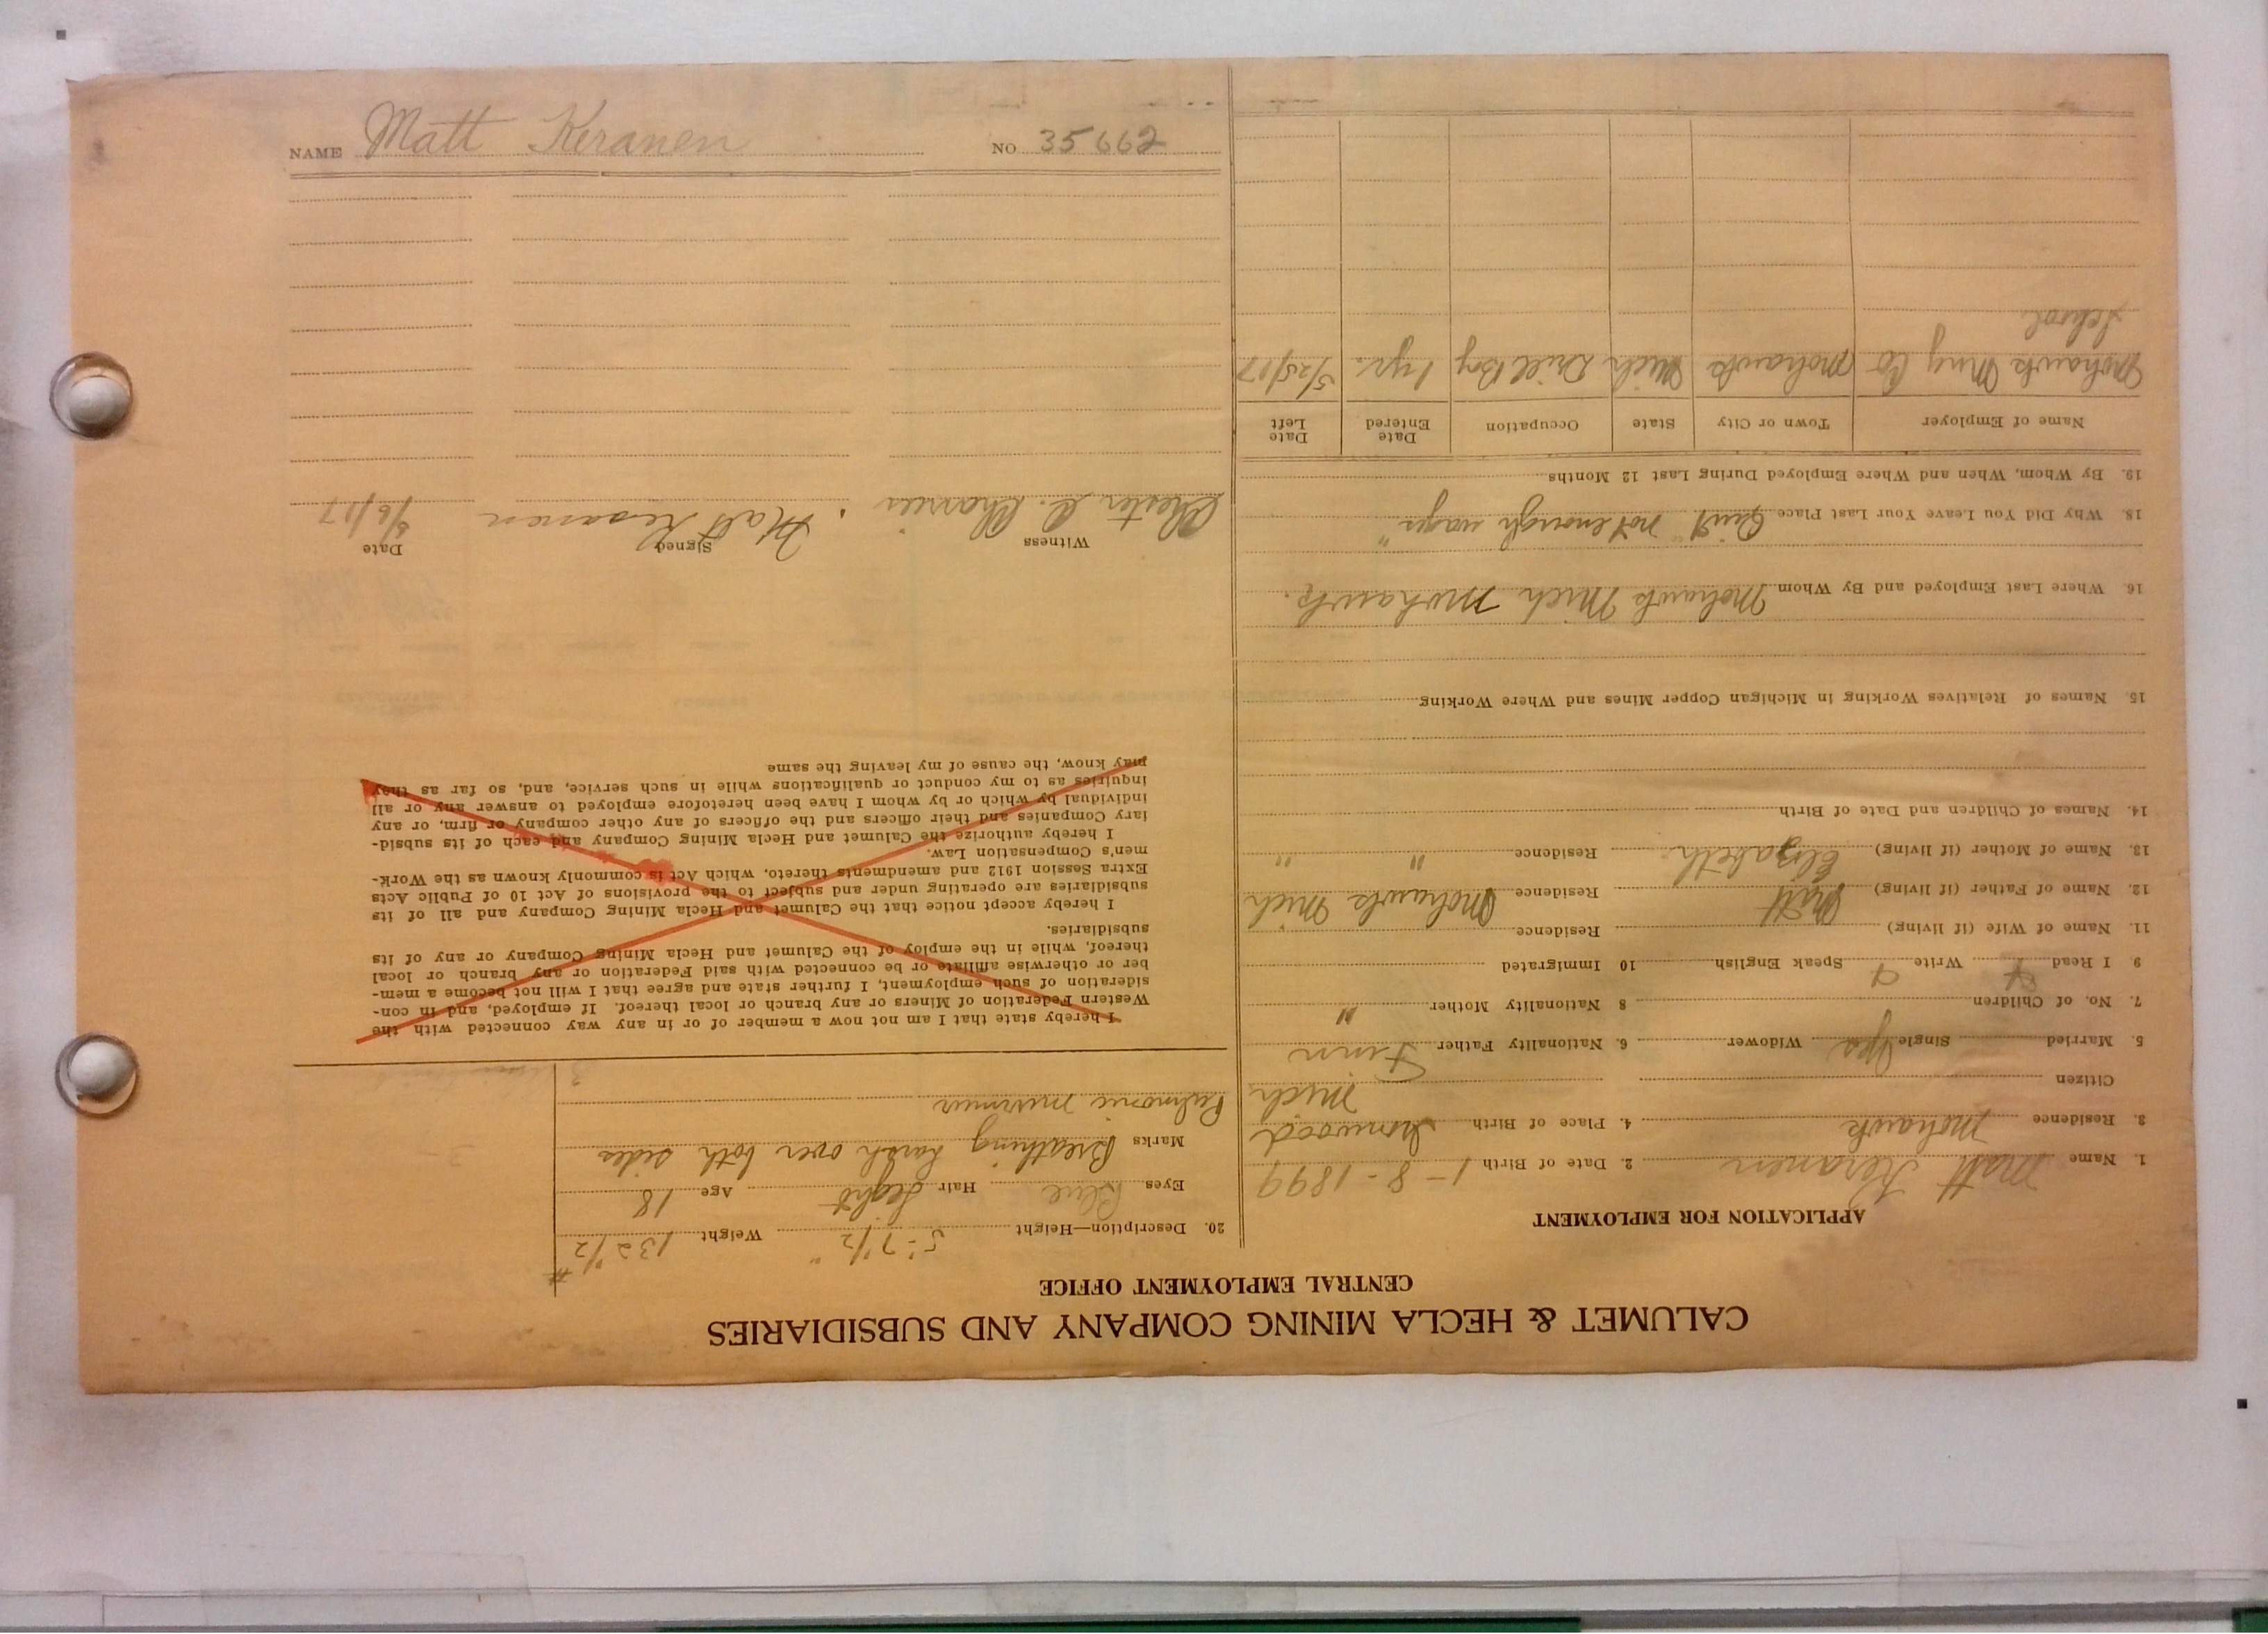 NAME Matt Keranen NO. 35662
CALUMET & HECLA MINING COMPANY AND SUBSIDIARIES
CENTRAL EMPLOYMENT OFFICE
APPLICATION FOR EMPLOYMENT
1. Name Matt Keranen 2. Date of Birth 1-8-1899
3. Residence Mohawk 4. Place of Birth Ironwood
Mich
Citizen
5. Married Single Yes Widower 6. Nationality Father Finn
7. No. of Children 8 Nationality Mother "
9 I Read Write Speak English 10 Immigrated
11. Name of Wife (if living) Residence
12. Name of Father (if living) Matt Residence Mohawk Mich
13. Name of Mother (if living) Elizabeth Residence " "
14. Names of Children and Date of Birth
15. Names of Relatives Working in Michigan Copper Mines and Where Working
16. Where Last Employed and By Whom Mohawk Mich Mohawk.
18. Why Did You Leave Your Last Place Quit "not enough wages"
19. By Whom, When and Where Employed During Last 12 Months
Name of Employer Town or City State Occupation Date Entered Date Left
Mohawk Mng Co Mohawk Mich Drill Boy 1 yr. 5/25/17
School
20. Description—Height 5'-7 1/2" Weight 132 1/2 #
Eyes Blue Hair Light Age 18
Marks Breathing harsh over both sides
Pulmonic murmur
I hereby state that I am not now a member of or in any way connected with the
Western Federation of Miners or any branch or local thereof. If employed, and in con-
sideration of such employment, I further state and agree that I will not become a mem-
ber or otherwise affiliate or be connected with said Federation or any branch or local
thereof, while in the employ of the Calumet and Hecla Mining Company or any of its
subsidiaries.
I hereby accept notice that the Calumet and Hecla Mining Company and all of its
subsidiaries are operating under and subject to the provisions of Act 10 of Public Acts
Extra Session 1912 and amendments thereto, which Act is commonly known as the Work-
men's Compensation Law.
I hereby authorize the Calumet and Hecla Mining Company and each of its subsid-
iary Companies and their officers and the officers of any other company or firm, or any
individual by which or by whom I have been heretofore employed to answer any or all
inquiries as to my conduct or qualifications while in such service, and, so far as they
may know, the cause of my leaving the same
Witness Signed Date
Chester Matt Keranen 6/17